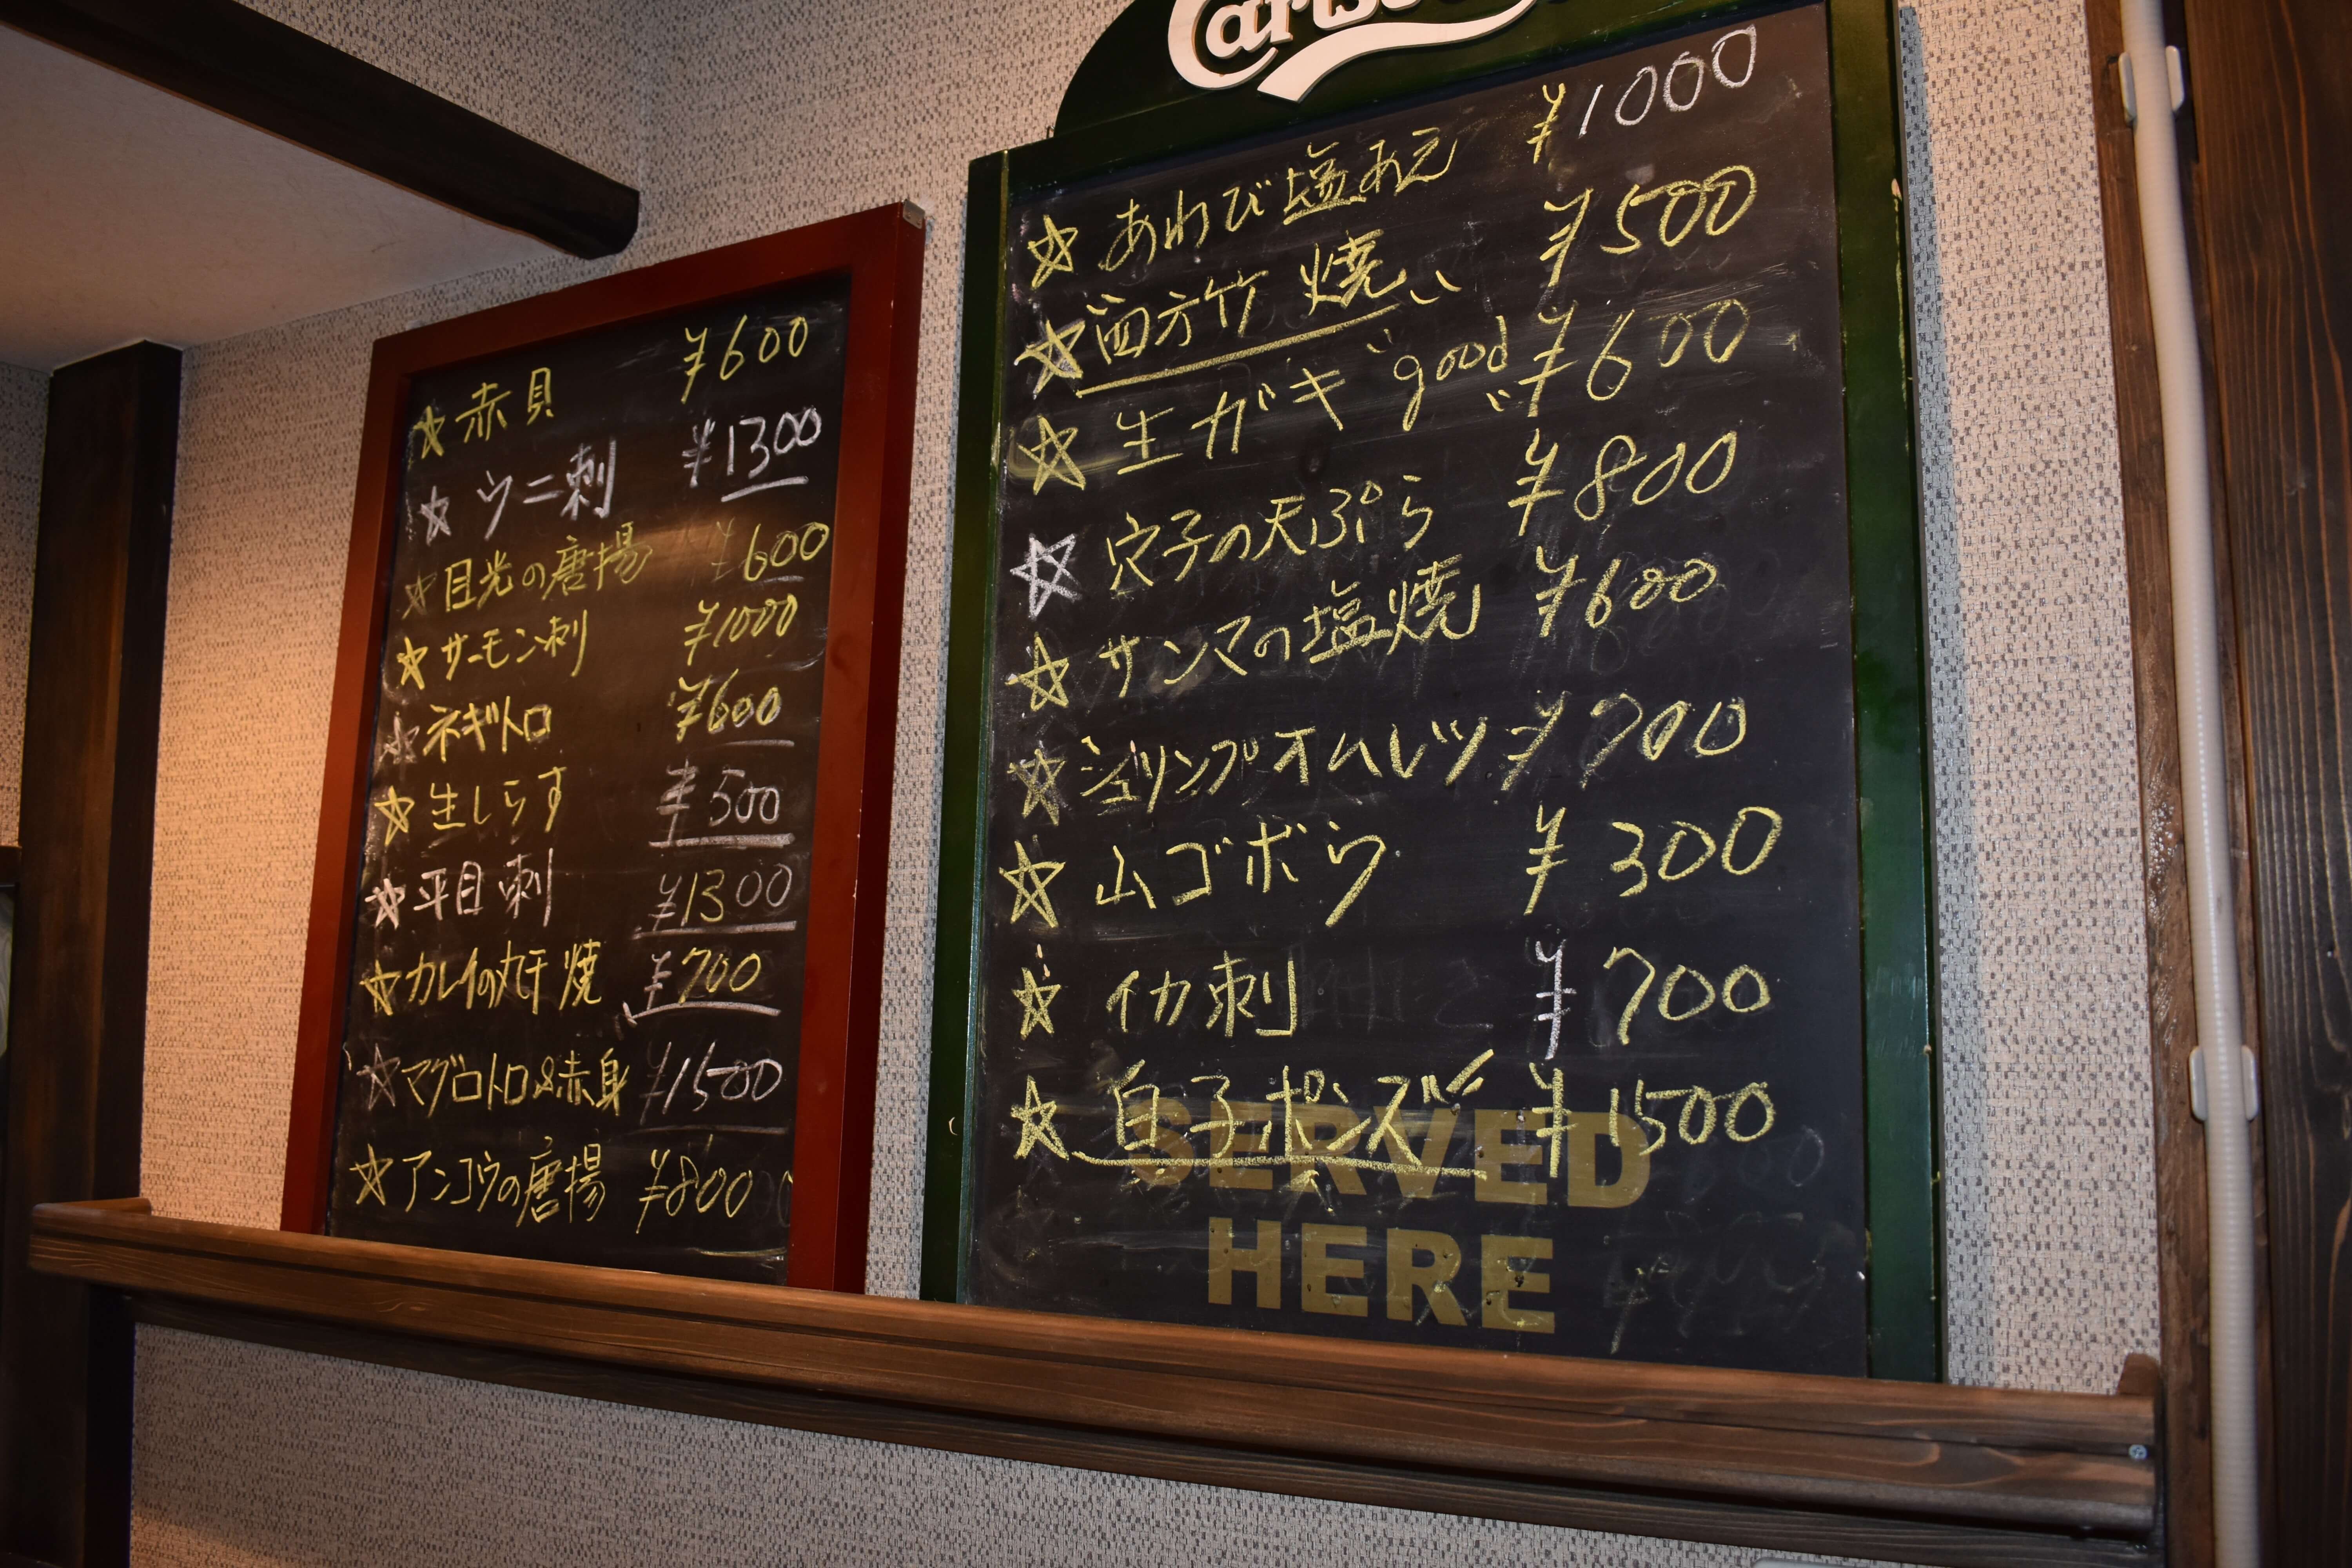 ☆ 赤貝 ¥600
☆ ウニ刺 ¥1300
☆ 目光の唐揚 ¥600
☆ サーモン刺 ¥1000
☆ ネギトロ ¥600
☆ 生しらす ¥500
☆ 平目刺 ¥1300
☆ カレイの丸干焼 ¥700
☆ マグロトロ&赤身 ¥1500
☆ アンコウの唐揚 ¥800
Carlsberg
☆ あわび塩あえ ¥1000
☆ 四方竹 焼 ¥500
☆ 生ガキ "good" ¥600
☆ 穴子の天ぷら ¥800
☆ サンマの塩焼 ¥600
☆ シュリンプオムレツ ¥700
☆ 山ゴボウ ¥300
☆ イカ刺 ¥700
☆ 白子ポンズ ¥1500
SERVED
HERE